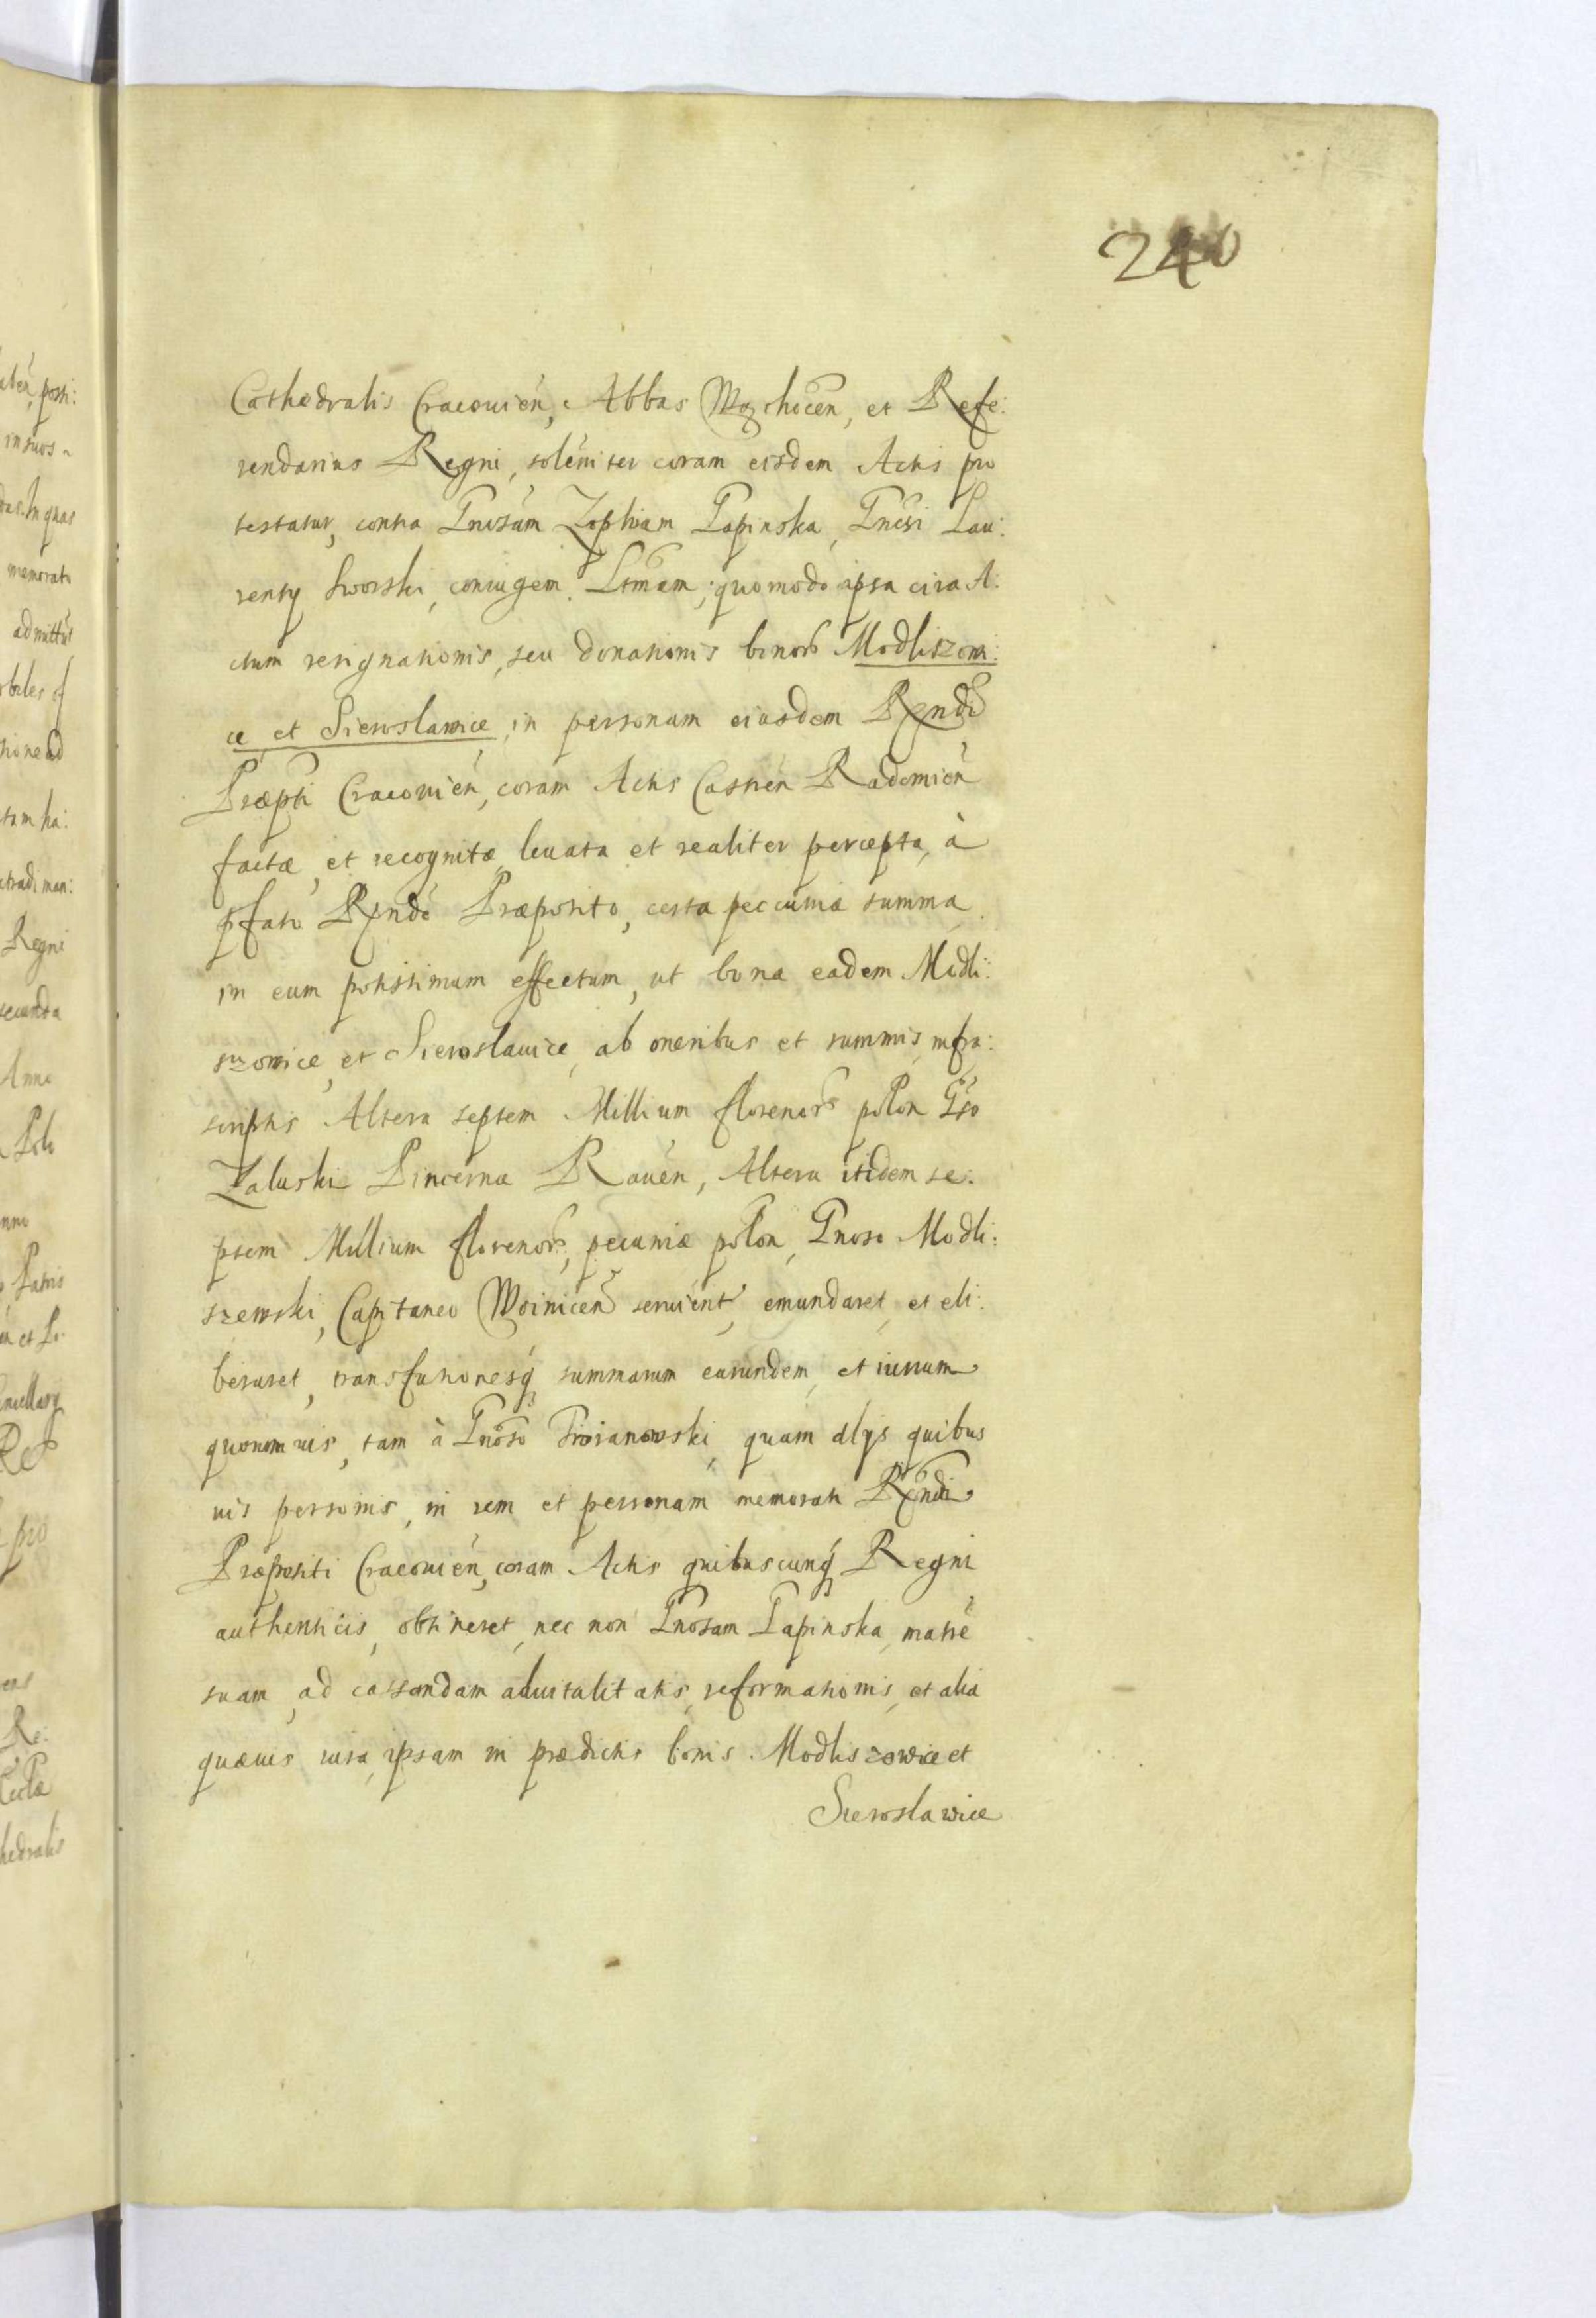 240
Cathedralis Cracouien, Abbas Wąchocen, et Refe:
rendarius Regni, solemniter coram eisdem Actis pro
testatur, contra Gnosam Zophiam Papinska, Gnosi Lau:
renty Sworski, coniugem Ltmam; quomodo ipsa circa A:
ctum resignationis, seu donationis bonor Modliszowi:
ce et Sieroslawice, in personam eiusdem Rxndi
Præpti Cracouien, coram Actis Castren Radomien
factæ, et recognitæ, leuata et realiter percepta, à
pfato Rxndo Præposito, certa pecuniæ summa,
in eum potissimum effectum, ut bona eadem Modli:
szowice, et Sieroslauice, ab oneribus et summis, infra:
scriptis Altera septem Millium florenor polon Gso
Zaluski Pincernæ Rauen, Altera itidem se:
ptem Millium florenor, pecuniæ polon, Gnoso Modli:
szewski, Capitaneo Woinicen seruient, emundaret, et eli:
beraret, transfusionesq summarum earundem, et iurium
quorumuis, tam à Gnoso Troianowski, quam alys quibus
uis personis, in rem et personam memorati Rxndi
Præpositi Cracouien, coram Actis quibuscunq Regni
authenticis, obtineret, nec non Gnosam Papinska, matre
suam, ad cassandam aduitalitatis, reformationis, et alia
quæuis iura, ipsam in prædictis bonis Modliszowice et
Sieroslawice